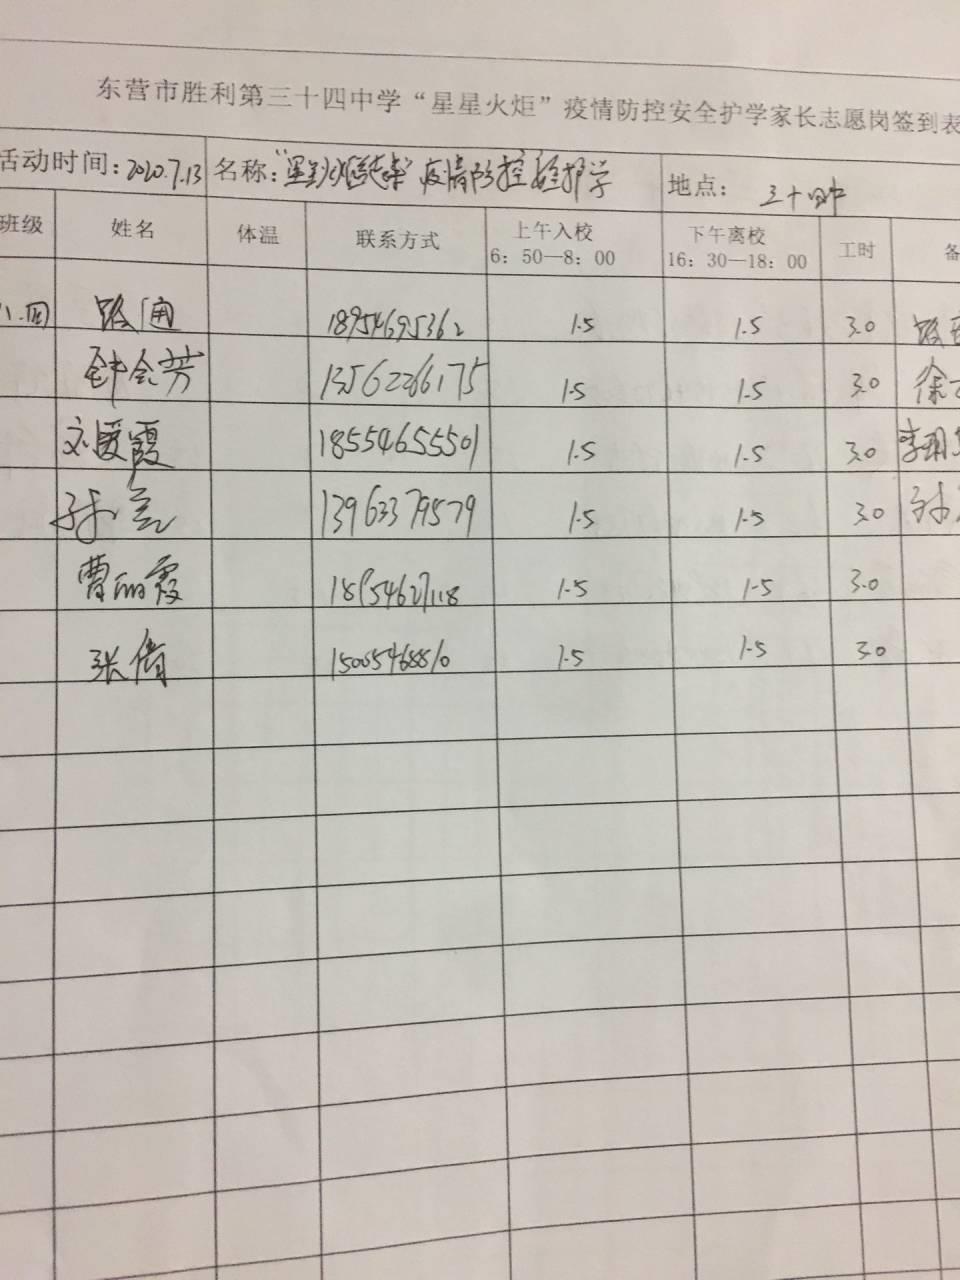 东营市胜利第三十四中学“星星火炬”疫情防控安全护学家长志愿岗签到表
活动时间：2020.7.13 名称：“星星火炬志愿” 疫情防控安全护学 地点： 三十四中
班级 姓名 体温 联系方式 上午入校 6：50—8：00 下午离校 16：30—18：00 工时 备
八.四 路通 18954695362 1.5 1.5 3.0 路
钟会芳 13562266175 1.5 1.5 3.0 徐
刘爱霞 18554655501 1.5 1.5 3.0 李明
孙亮 13963379579 1.5 1.5 3.0 孙
曹丽霞 18554627118 1.5 1.5 3.0
张倩 15005468810 1.5 1.5 3.0